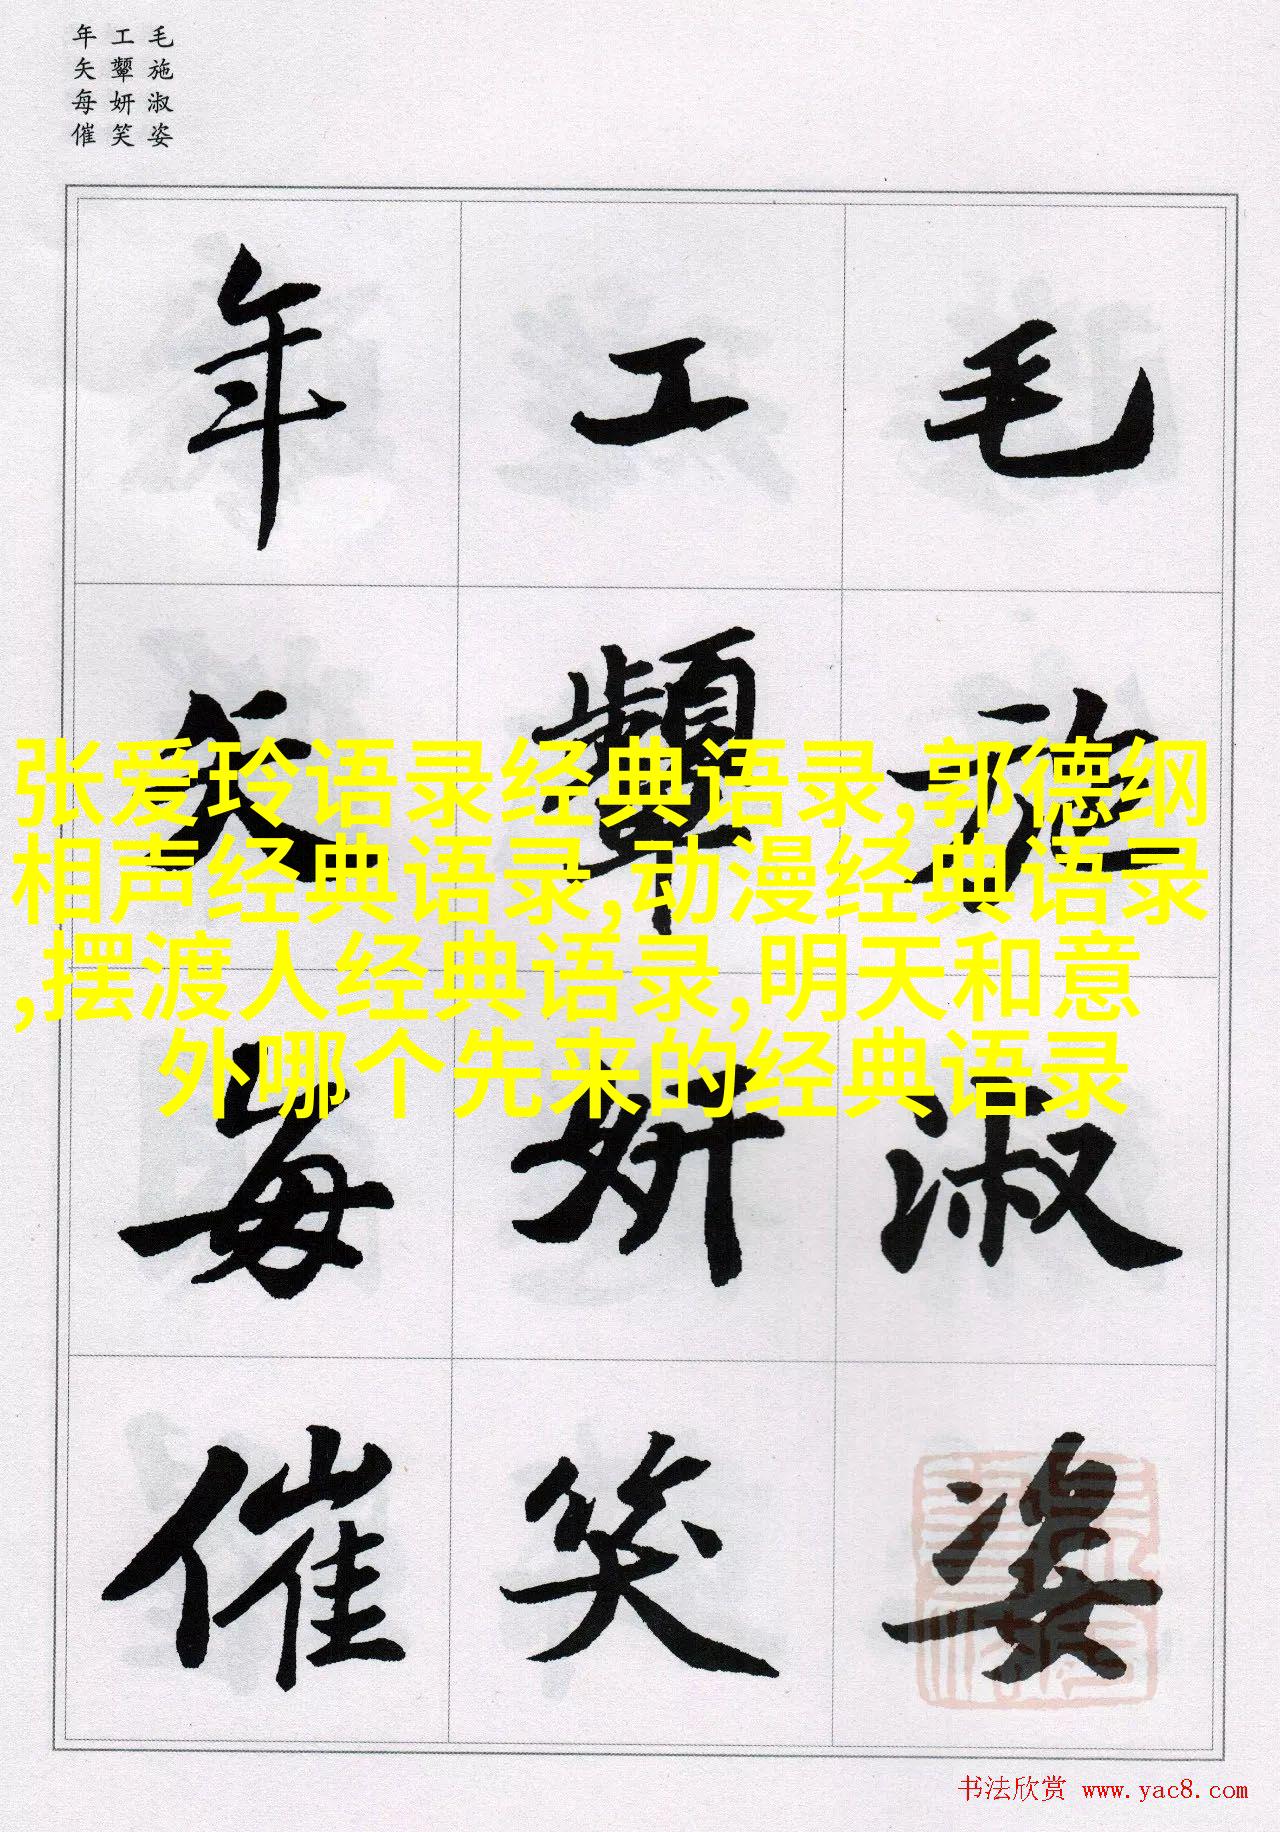 年 工 毛
矢 顰 施
每 妍 淑
催 笑 姿
年 工 毛
矢 顰 施
每 妍 淑
催 笑 姿
张爱玲语录经典语录,郭德纲
相声经典语录,动漫经典语录
,摆渡人经典语录,明天和意
外哪个先来的经典语录
书法欣赏 www.yac8.com